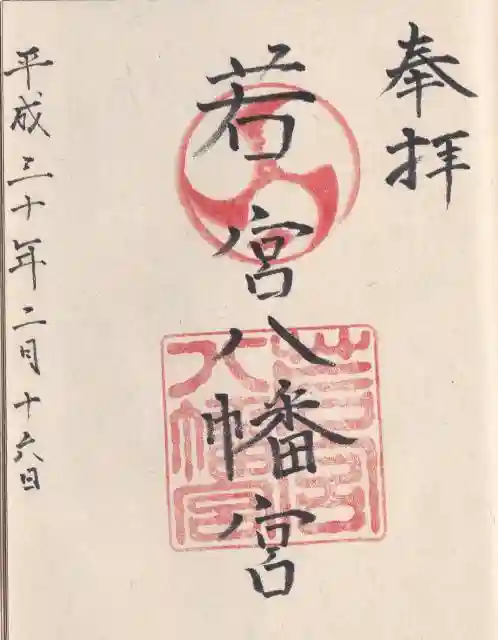 奉拝
若宮八幡宮
若宮
八幡宮
平成三十年二月十六日